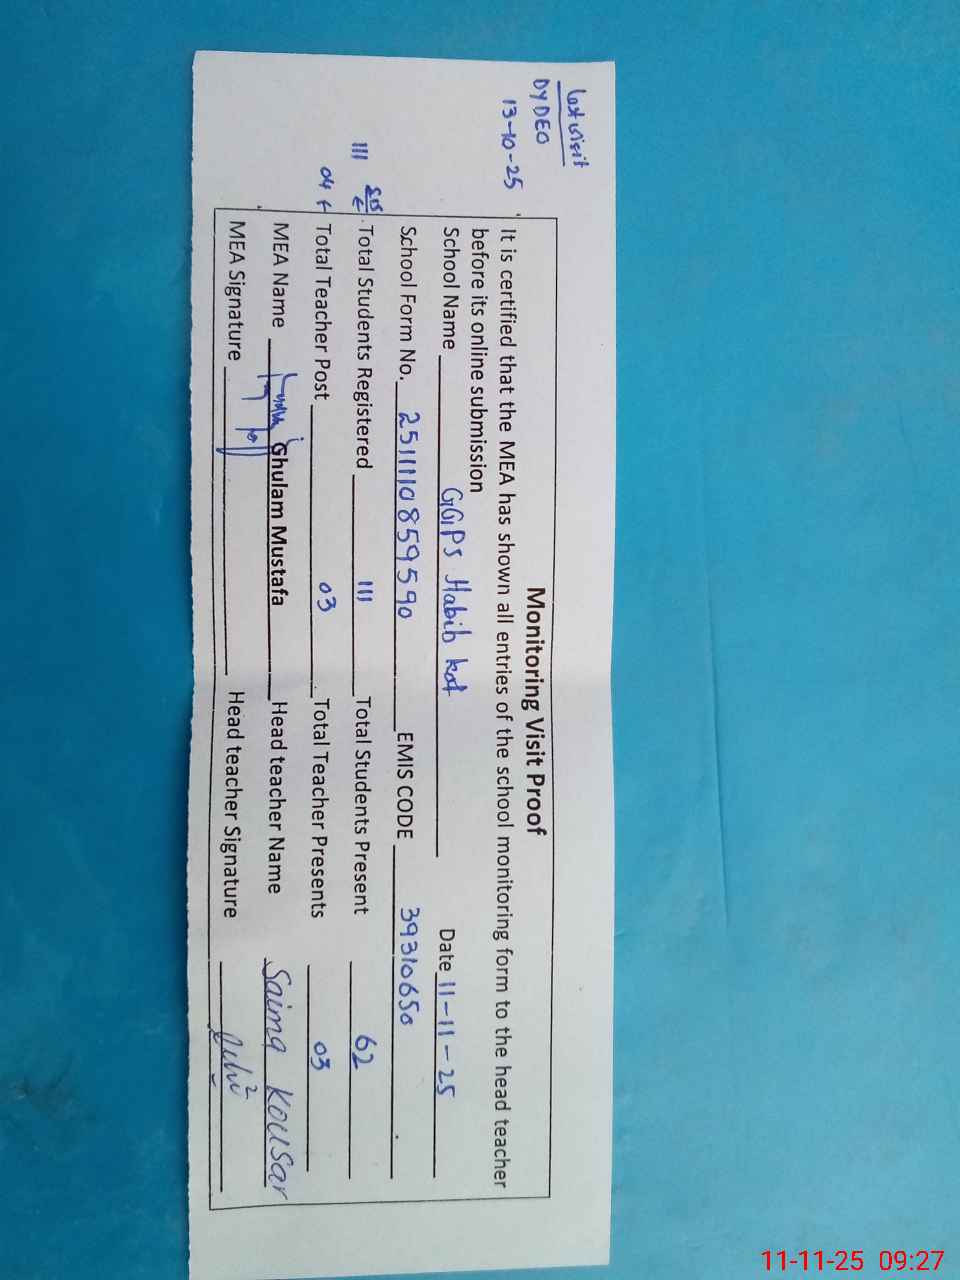 Last visit
DYDEO
13-10-25
Monitoring Visit Proof
It is certified that the MEA has shown all entries of the school monitoring form to the head teacher
before its online submission
School Name GGPS Habib kot Date 11-11-25
School Form No. 2511110859590 EMIS CODE 39310650
111 SIS Total Students Registered 111 Total Students Present 62
04 Total Teacher Post 03 Total Teacher Presents 03
MEA Name Ghulam Mustafa Head teacher Name Saima Kousar
MEA Signature Head teacher Signature
11-11-25 09:27